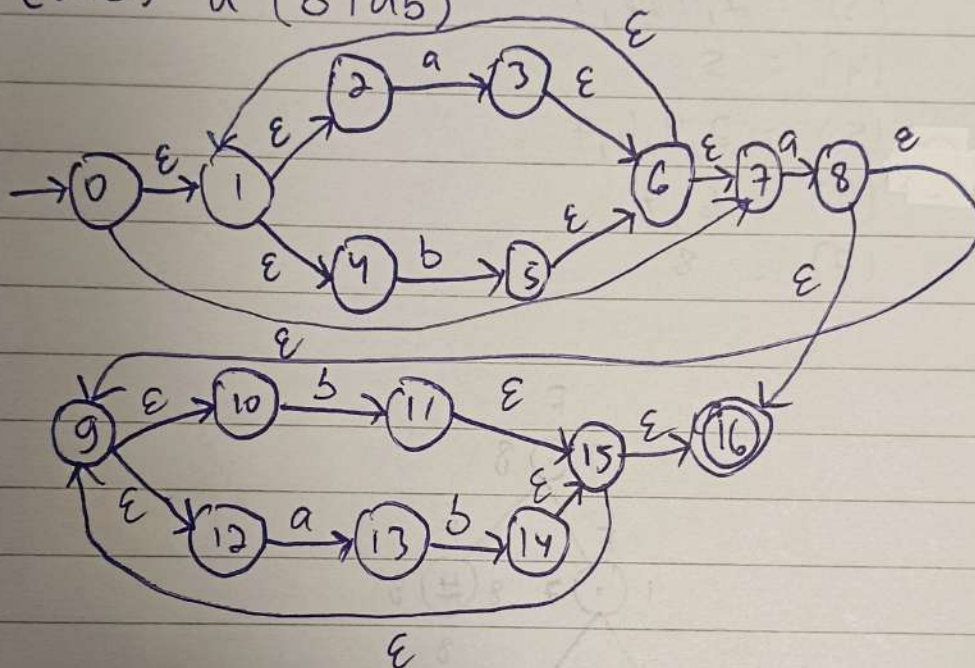 a (b|ab)
ε
2 a 3
ε ε
0 ε 1 6 ε 7 a 8 ε
ε 4 b 5 ε
ε
ε
9 ε 10 b 11 ε
15 ε 16
ε 12 a 13 b 14 ε
ε